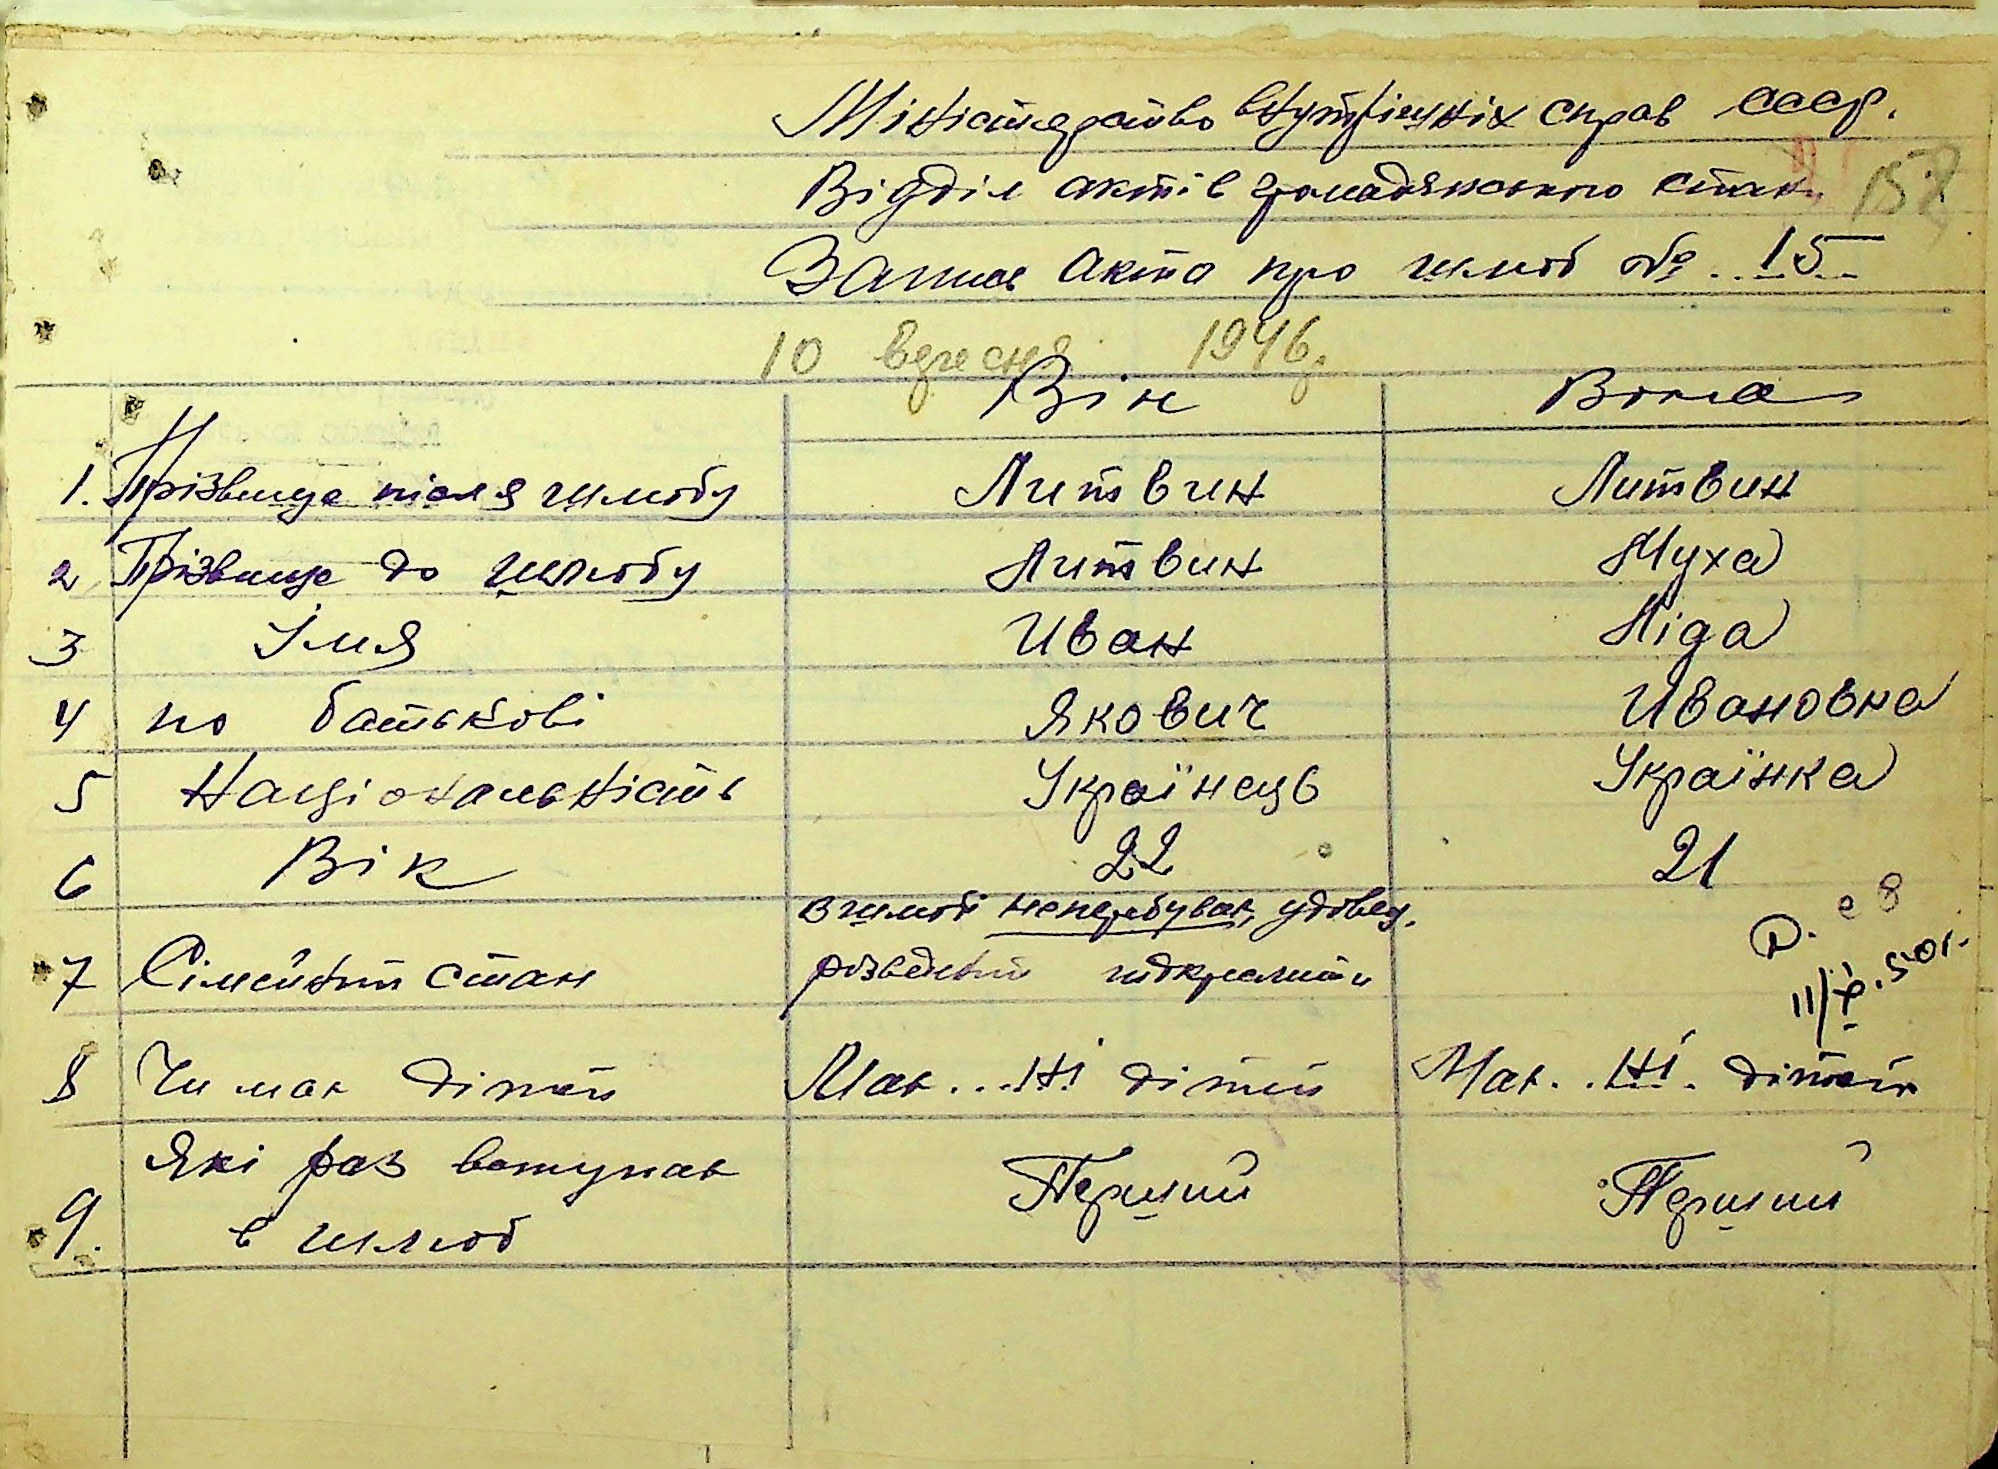 Міністерство внутрішніх справ СССР.
Відділ актів громадянського стану
Запис акта про шлюб №. 15
10 вересня 1946р.
Він Вона
1. Прізвище після шлюбу Литвин Литвин
2 Прізвище до шлюбу Литвин Муха
3 Імя Иван Ліда
4 по батькові Якович Ивановна
5 Національність Українець Українка
6 Вік 22 21
в шлюбі неперебував, удовец.
7 Сімейний стан розведений підкреслити
8 Чи має дітей Має...Ні дітей Має..Ні. дітей
Які раз вступає
9. в шлюб Перший Перший